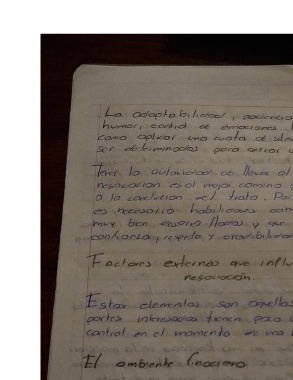 La adaptabilidad, paciencia
humor, control de emociones
como aplicar una cuota de
ser determinados para cerrar
Tener la autoridad de llevar al
negociacion es el mejor camino
a la conclusion del trato. Por
es necesario habilidades
muy bien desarrolladas y que
confianza, respeto y credibilidad
Factores externos que influ
nesociación.
Estos elementos son aquellos
partes interesadas tienen poco
control en el momento de una
El ambiente financiero